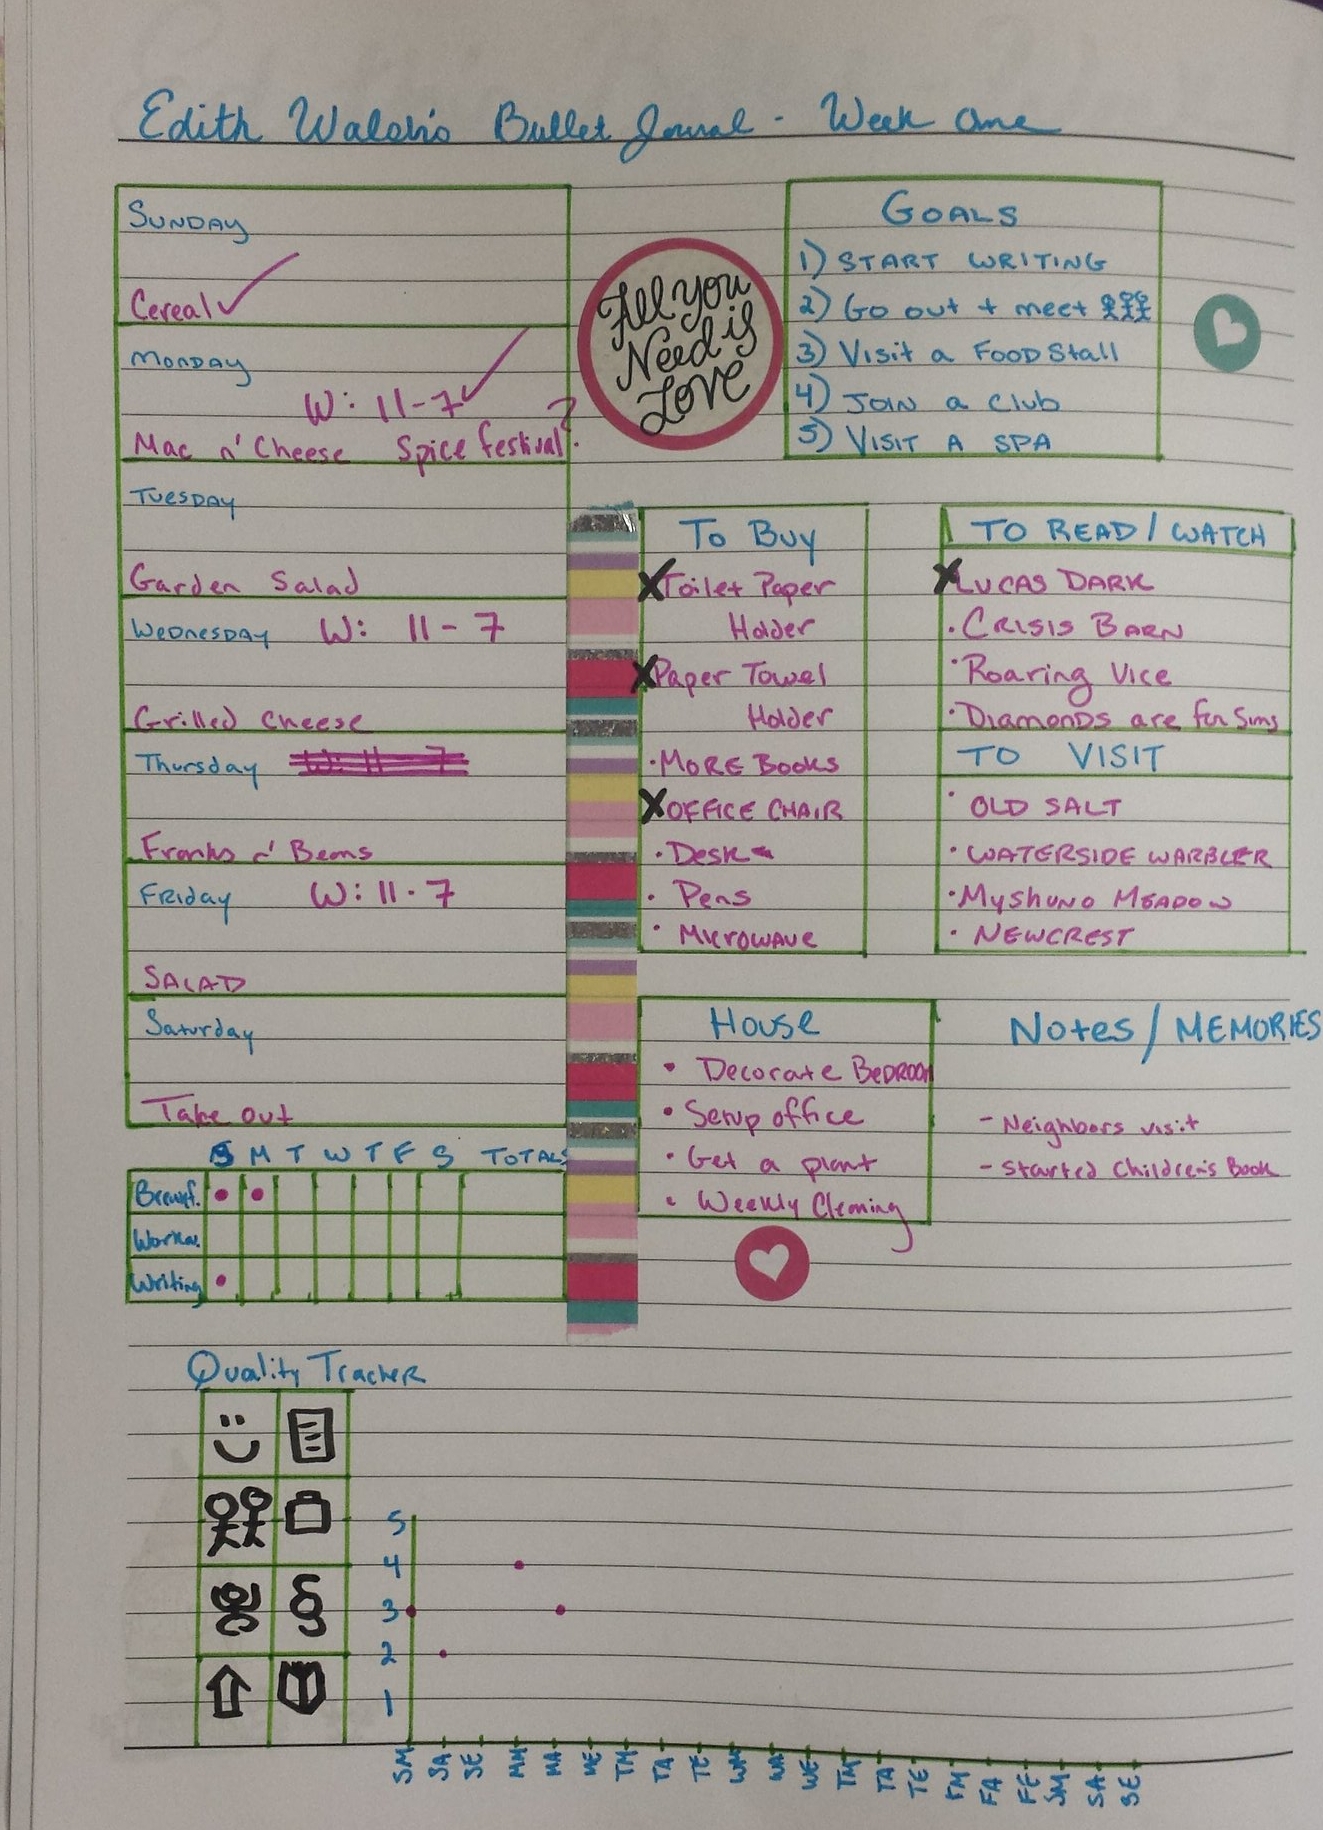 Edith Walsh's Bullet Journal - Week One
SUNDAY
Cereal
MONDAY
W: 11-7
Mac n' Cheese Spice festival?
TUESDAY
Garden Salad
WEDNESDAY W: 11-7
Grilled Cheese
Thursday W: 11-7
Franks n' Beans
FRIDAY W: 11-7
SALAD
Saturday
Take out
All you
Need is
Love
GOALS
1) START WRITING
2) Go out + meet
3) Visit a FOOD Stall
4) JOIN a Club
5) VISIT A SPA
To Buy
Toilet Paper
Holder
Paper Towel
Holder
MORE BOOKS
OFFICE CHAIR
Desk
Pens
MICROWAVE
TO READ / WATCH
LUCAS DARK
CRISIS BARN
Roaring Vice
Diamonds are for Sims
TO VISIT
OLD SALT
WATERSIDE WARBLER
MYSHUNO MEADOW
NEWCREST
House
Decorate BEDROOM
Setup office
Get a plant
Weekly Cleaning
Notes / MEMORIES
- Neighbors visit
- Started Children's Book
S M T W T F S TOTALS
Writing
Quality Tracker
5
4
3
2
1
SM SA SE MM MA ME TM TA TE WM WA WE TM TA TE FM FA FE SM SA SE